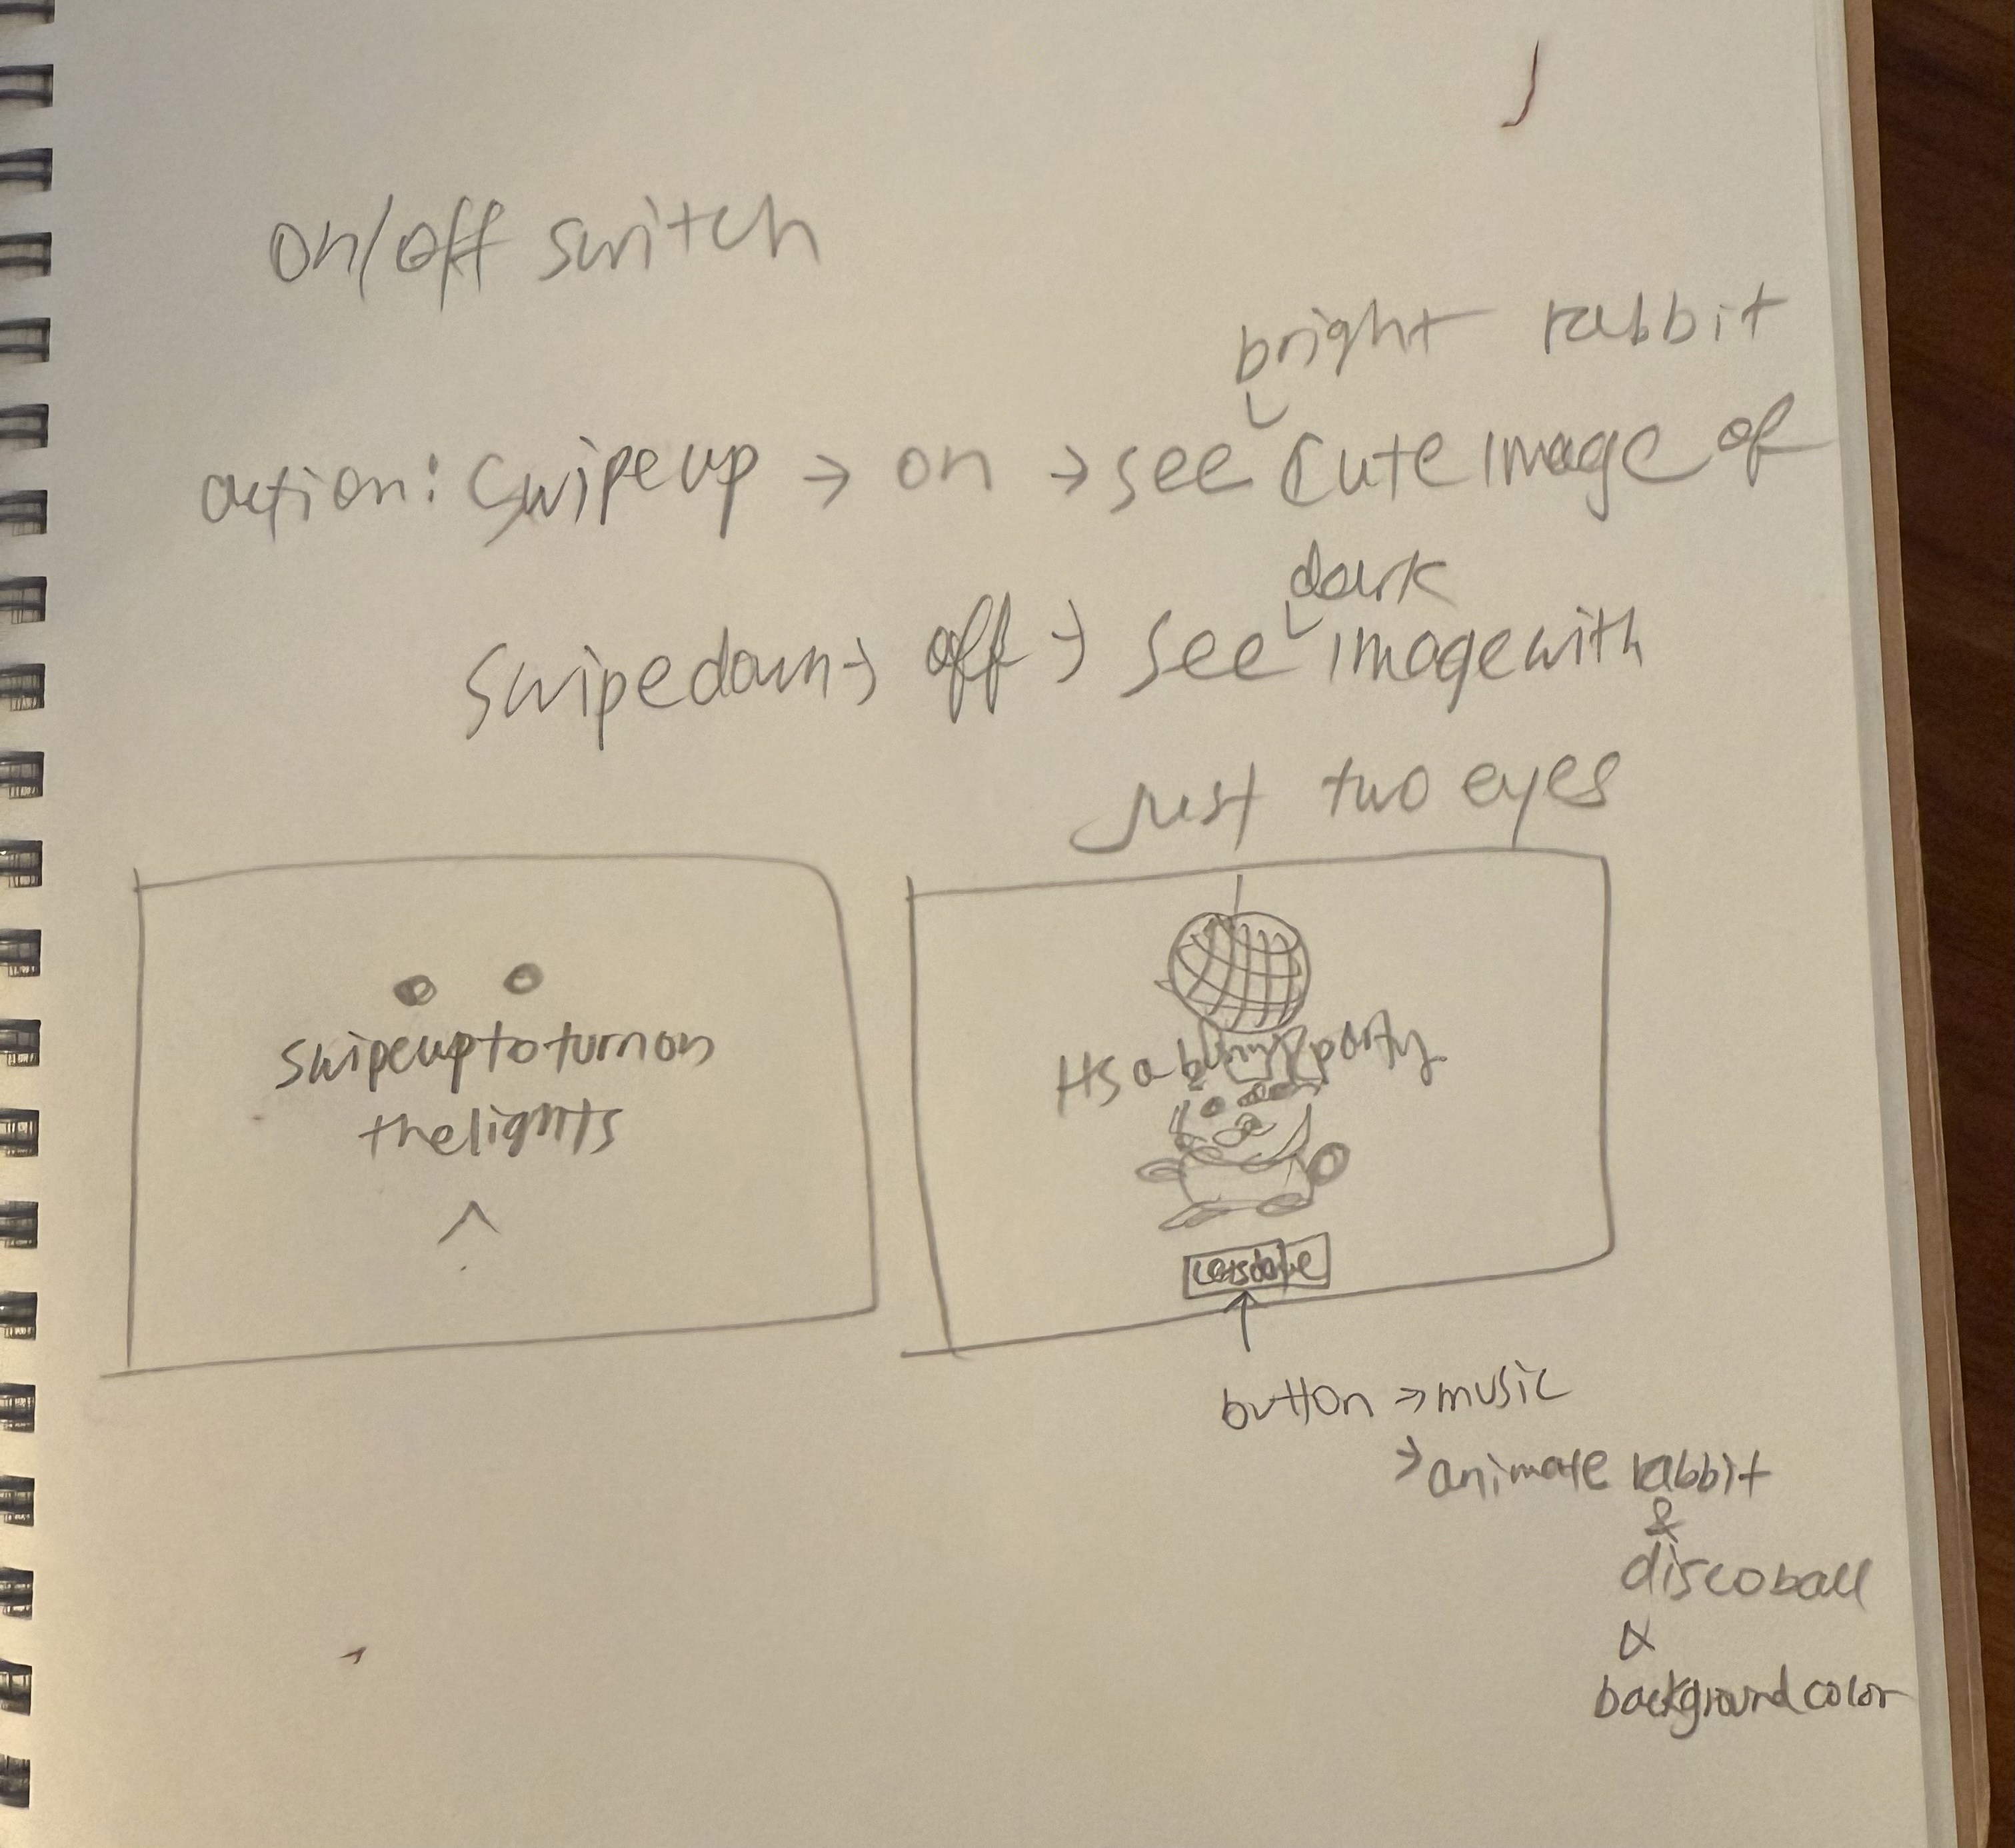 on/off switch
bright rabbit
action: swipe up → on → see cute image of
dark
swipe down → off → see image with
just two eyes
swipe up to turn on
the lights
Its a bunny party
Lets dance
button → music
→ animate rabbit
&
disco ball
&
background color